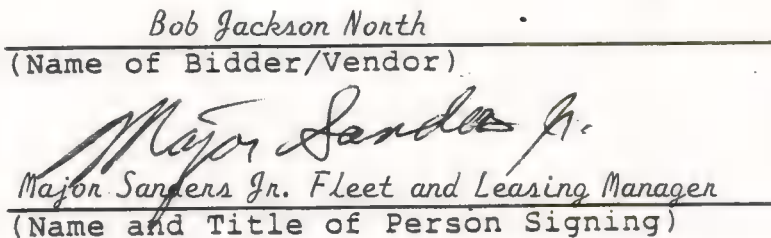 Bob Jackson North
(Name of Bidder/Vendor)
Major Sanders Jr.
Major Sanders Jr. Fleet and Leasing Manager
(Name and Title of Person Signing)